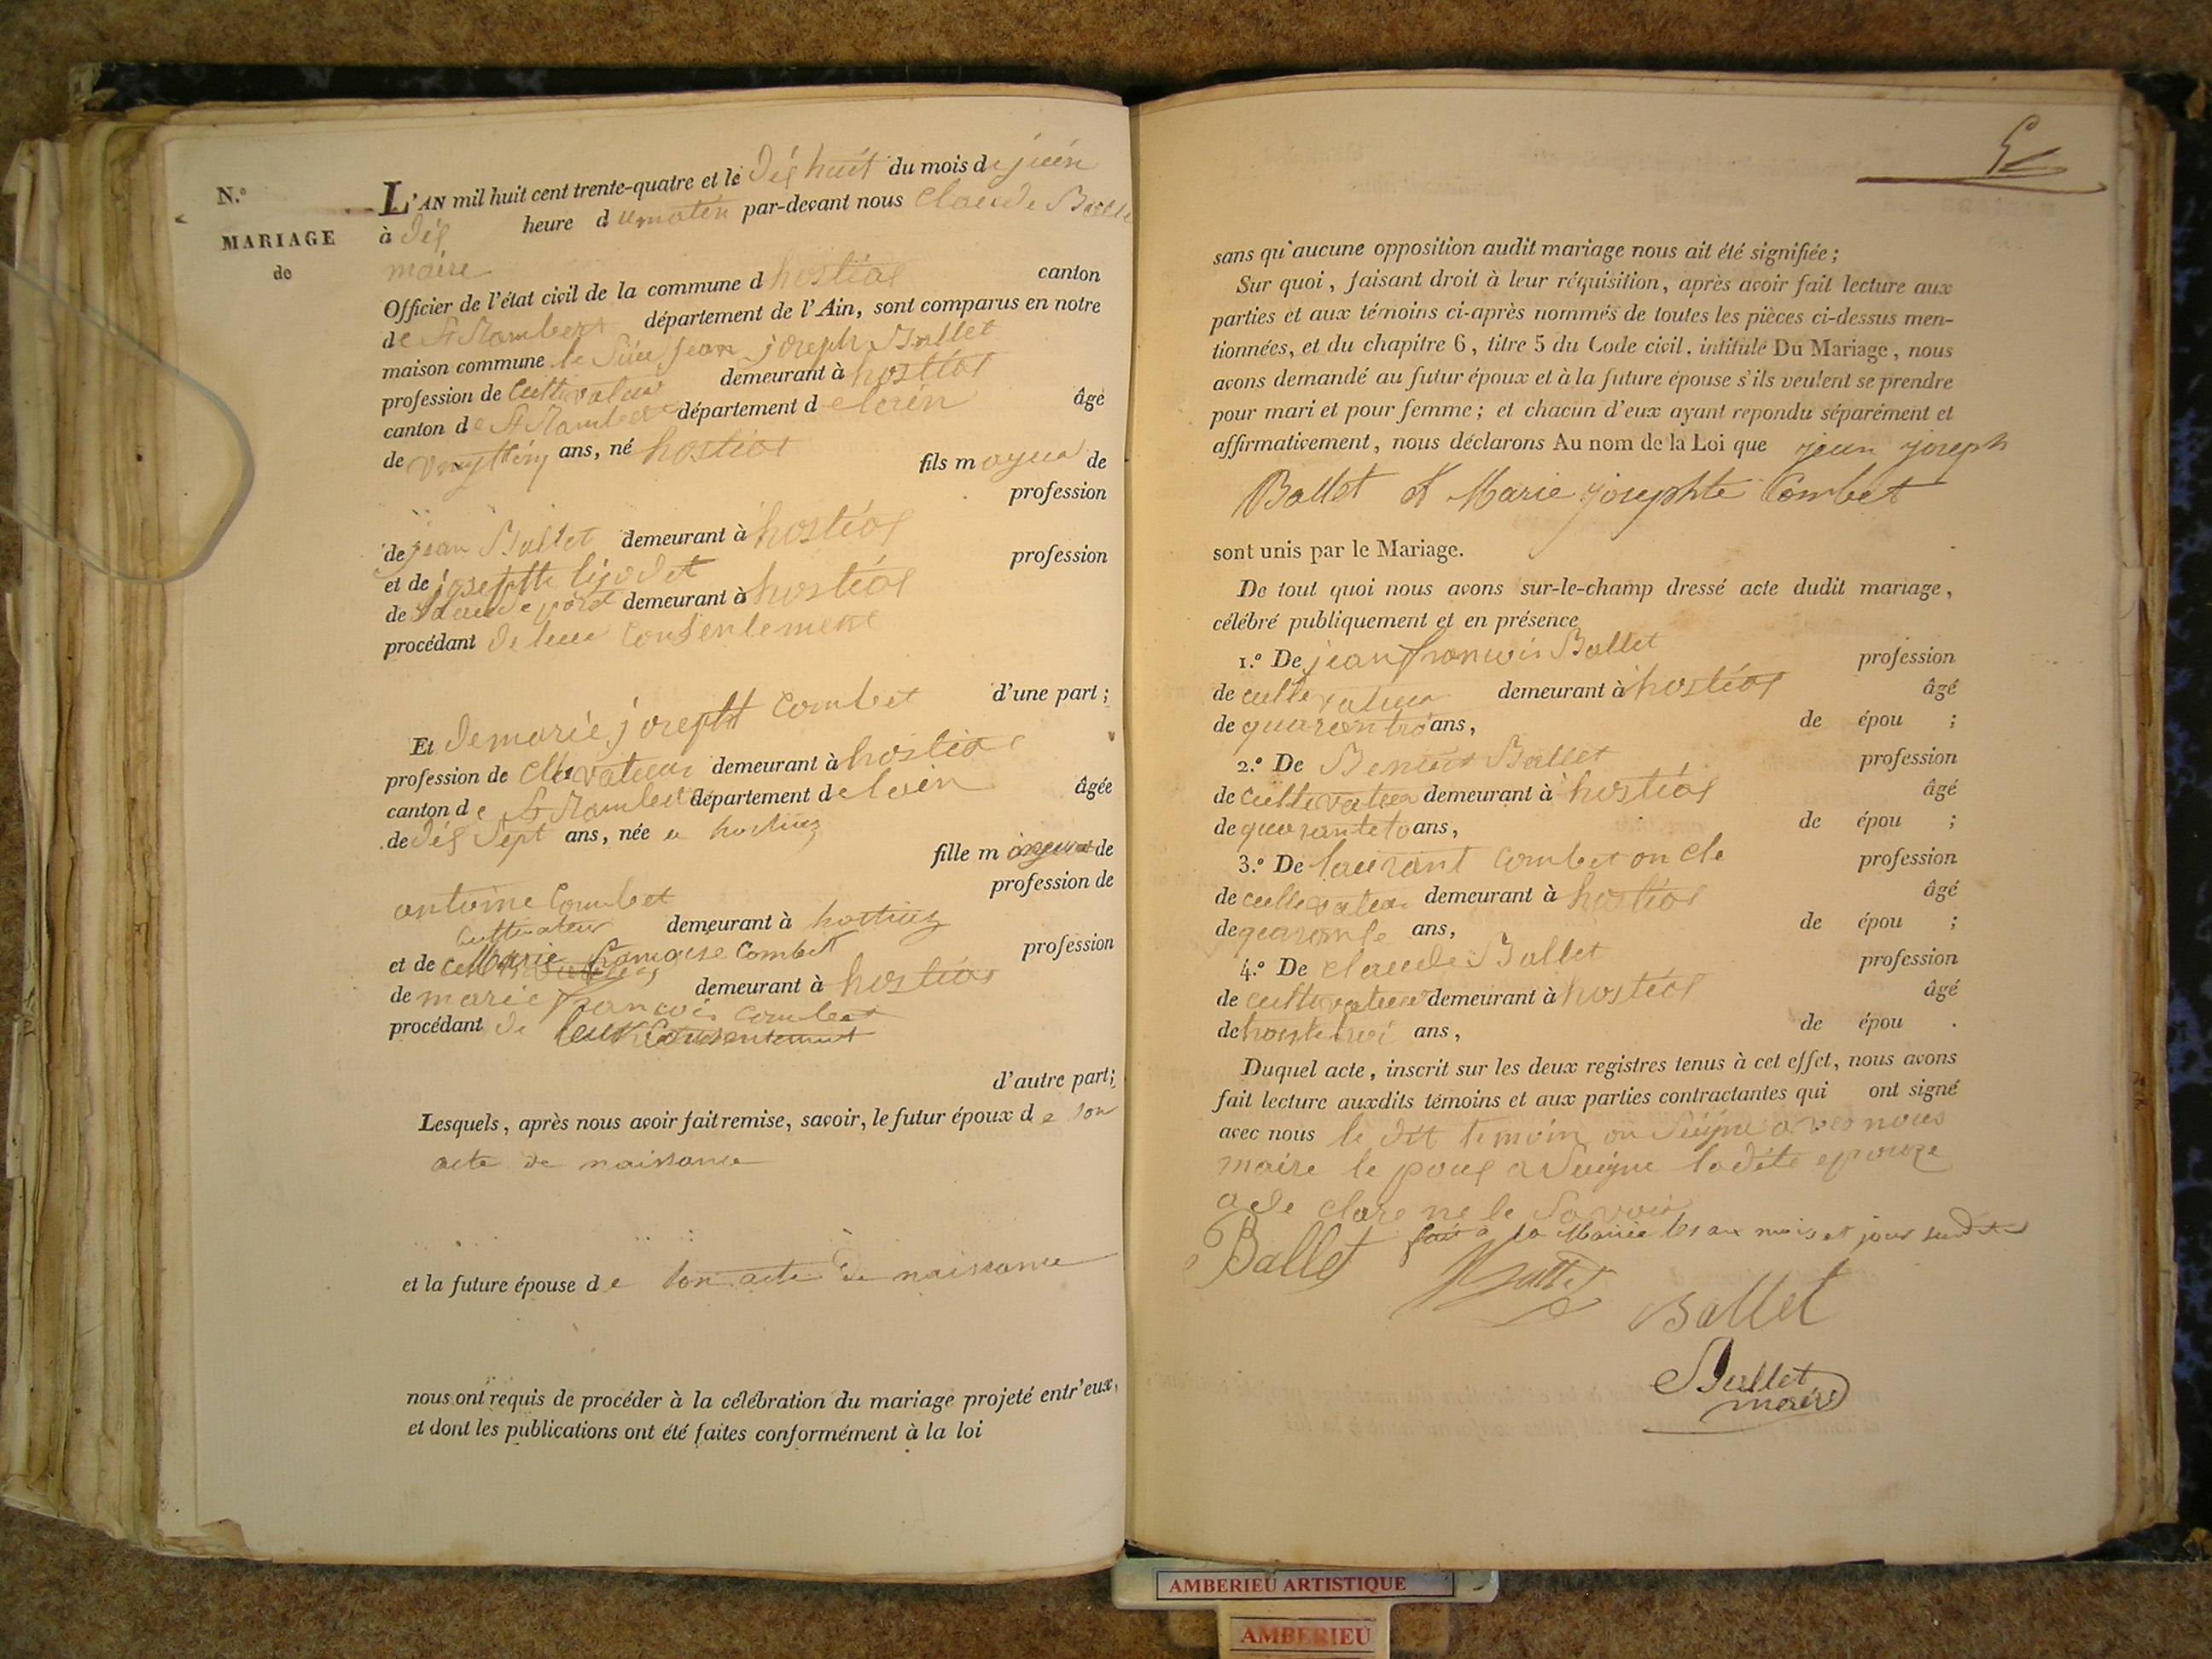 N.º
MARIAGE
de
L'AN mil huit cent trente-quatre et le dés huit du mois de juén
à dés heure d umatén par-devant nous Claude Balle
maire
Officier de l'état civil de la commune d hostias canton
de St Rambert département de l'Ain, sont comparus en notre
maison commune le jean joseph Ballet
profession de demeurant à hostias
canton de St Rambert département d elain âgé
de ans, né hostias
fils m de
profession
de jean Ballet demeurant à hostias
et de josephte profession
de demeurant à hostias
procédant de leur Consentement
d'une part ;
Et de marie josepht Combet
profession de demeurant à hostias
canton de St Rambert département de lain âgée
de dés Sept ans, née a hostiaz
fille m de
antoine Combet profession de
Cultivateur demeurant à hostiaz
et de Marie francoise Combet profession
de marie francois Combet demeurant à hostias
procédant de leur Consentement
d'autre part;
Lesquels, après nous avoir fait remise, savoir, le futur époux de son
acte de naissance
et la future épouse de son acte de naissance
nous ont requis de procéder à la célébration du mariage projeté entr'eux,
et dont les publications ont été faites conformément à la loi
sans qu'aucune opposition audit mariage nous ait été signifiée ;
Sur quoi, faisant droit à leur réquisition, après avoir fait lecture aux
parties et aux témoins ci-après nommés de toutes les pièces ci-dessus men-
tionnées, et du chapitre 6, titre 5 du Code civil, intitulé Du Mariage, nous
avons demandé au futur époux et à la future épouse s'ils veulent se prendre
pour mari et pour femme ; et chacun d'eux ayant repondu séparément et
affirmativement, nous déclarons Au nom de la Loi que jean joseph
Ballet et Marie josephte Combet
sont unis par le Mariage.
De tout quoi nous avons sur-le-champ dressé acte dudit mariage,
célébré publiquement et en présence
1.º De jean francois Ballet profession
de cultevateur demeurant à hostias âgé
de ans, de épou ;
2.º De Benoit Ballet profession
de cultevateur demeurant à hostias âgé
de ans, de épou ;
3.º De laurant Combet oncle profession
de cultevateur demeurant à hostias âgé
de quarante ans, de épou ;
4.º De Claude Ballet profession
de cultevateur demeurant à hostias âgé
de ans, de épou .
Duquel acte, inscrit sur les deux registres tenus à cet effet, nous avons
fait lecture auxdits témoins et aux parties contractantes qui ont signé
avec nous le dit temoin on Siigne avec nous
maire le pous a Suigne ladite epouze
a de clare ne le Savoir
fait à la Mairie les an mois et jour susdits
Ballet Ballet
Ballet
Ballet
maire
AMBERIEU ARTISTIQUE
AMBERIEU